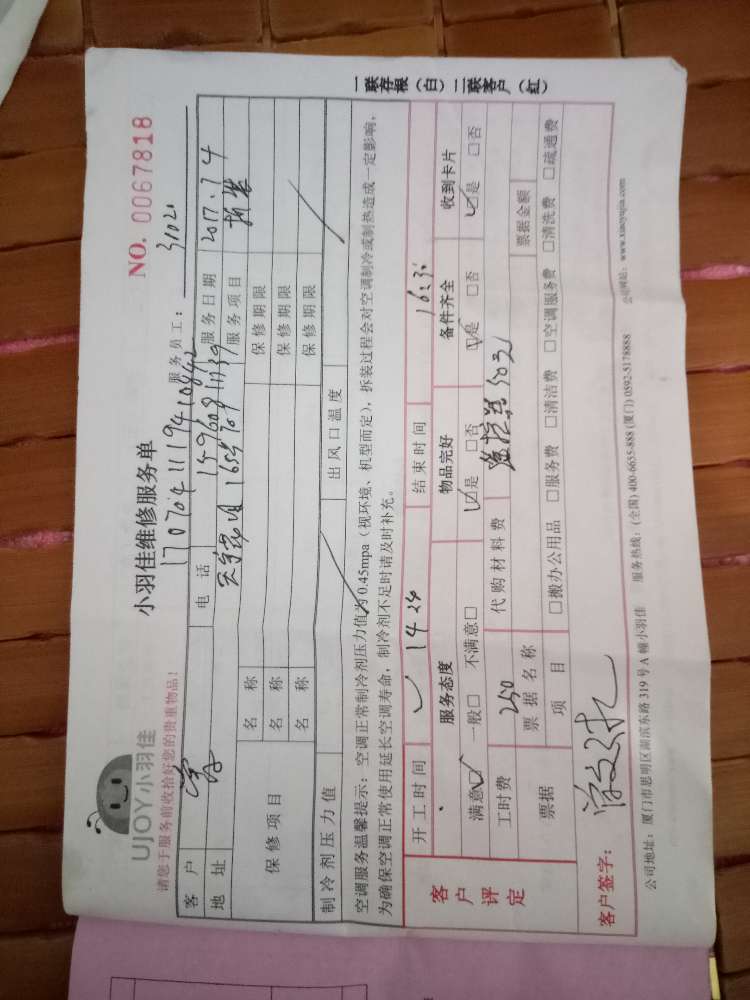 UJOY小羽佳
小羽佳维修服务单
NO. 0067818
请您于服务前收拾好您的贵重物品!
1707041119410842
服务员工: 31020
客户
电话 15960811739
服务日期 2017.7.4
地址
服务项目
保修项目
名称
保修期限
名称
保修期限
名称
保修期限
制冷剂压力值
出风口温度
空调服务温馨提示: 空调正常制冷剂压力值为0.45mpa(视环境、机型而定),拆装过程会对空调制冷或制热造成一定影响,
为确保空调正常使用延长空调寿命,制冷剂不足时请及时补充。
开工时间 14 24
结束时间
客户评定
服务态度
物品完好
备件齐全
收到卡片
满意□ 一般□ 不满意□
□是 □否
□是 □否
□是 □否
工时费 250
代购材料费
票据
票据名称
票据金额
项目
□搬办公用品 □服务费 □清洁费 □空调服务费 □清洗费 □疏通费
客户签字:
公司地址: 厦门市思明区湖滨东路319号A幢小羽佳 服务热线: (全国) 400-6655-888 (厦门) 0592-5178888 公司网站: www.xiaoyujia.com
一联存根(白)二联客户(红)